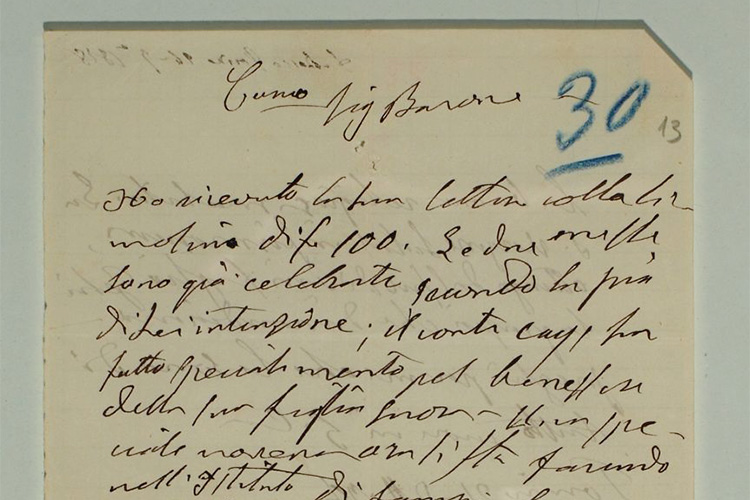 Car.mo Sig Barone
30
13
Ho ricevuto la sua lettera colla li-
mosina di f. 100. Le due messe
sono già celebrate secondo la pia
di Lei intenzione; il conte Cays ha
fatto specialmente pel benessere
della sua figlia suora – Una spe-
ciale novena ora si sta facendo
nell'Istituto di